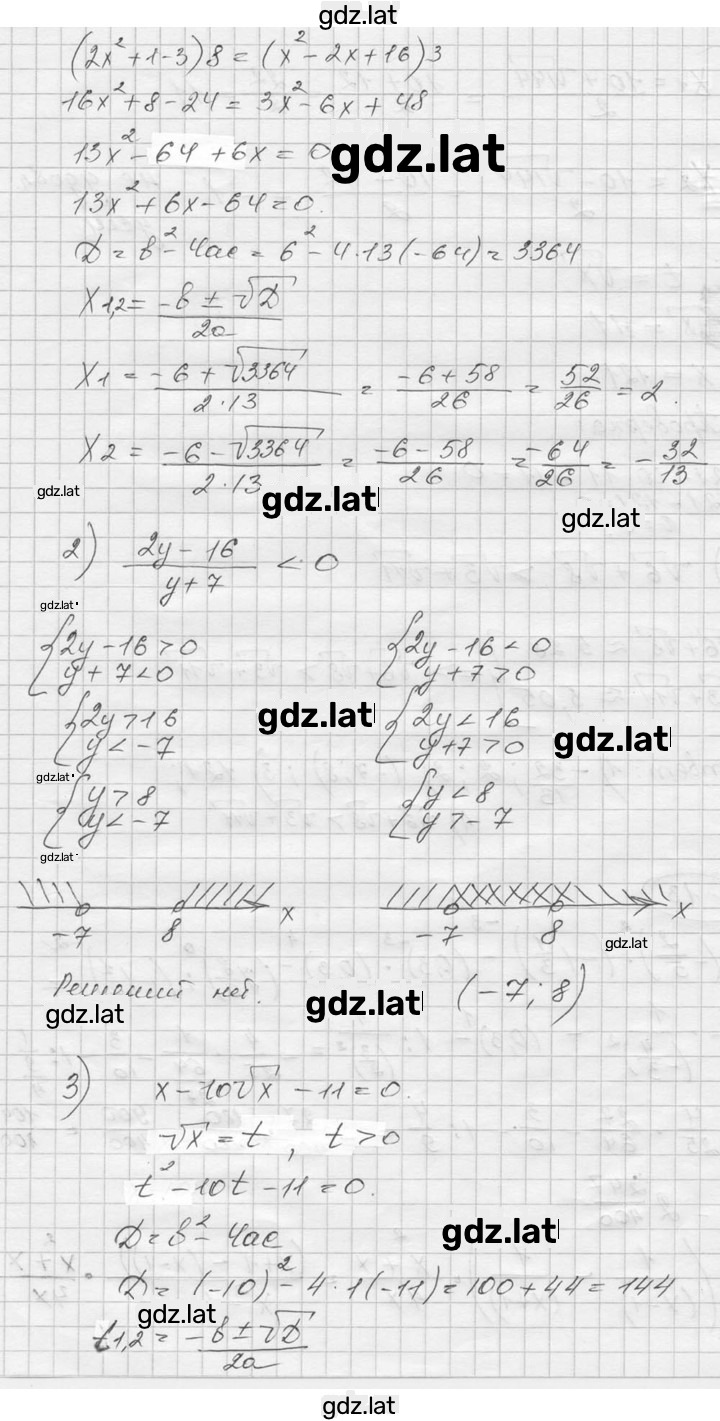 gdz.lat
(2x²+1-3)8 = (x²-2x+16)3
16x²+8-24 = 3x²-6x+48
13x²-64+6x = 0
gdz.lat
13x²+6x-64=0.
D = в²-4ac = 6²-4·13(-64) = 3364
X1,2 = -в ± √D / 2a
X1 = -6+√3364 / 2·13 = -6+58 / 26 = 52/26 = 2.
X2 = -6-√3364 / 2·13 = -6-58 / 26 = -64/26 = -32/13
gdz.lat
gdz.lat
gdz.lat
2) 2y-16 / y+7 < 0
gdz.lat
{2y-16>0 {2y-16<0
y+7<0 y+7>0
{2y>16 {2y<16
y<-7 y+7>0
gdz.lat
gdz.lat
gdz.lat
{y>8 {y<8
y<-7 y>-7
gdz.lat
-7 8 x -7 8 x
gdz.lat
Решений нет. (-7; 8)
gdz.lat
gdz.lat
3) x-10√x-11=0.
√x = t, t>0
t²-10t-11=0.
D=в²-4ac
gdz.lat
D = (-10)²-4·1(-11) = 100+44 = 144
gdz.lat
t1,2 = -в±√D / 2a
gdz.lat